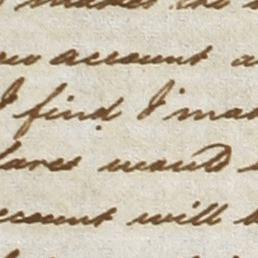 makes the
account a
I find I mak
lares would
ccount will b